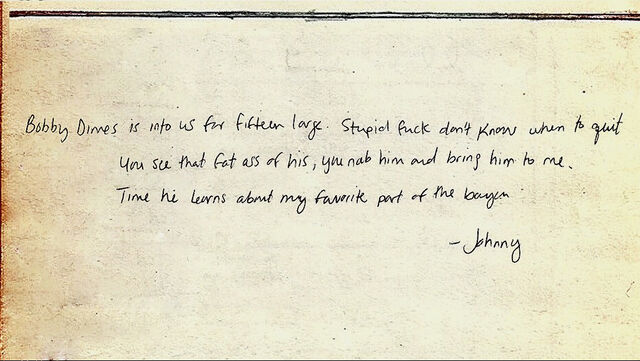 Bobby Dimes is into us for fifteen large. Stupid fuck don't know when to quit
You see that fat ass of his, you nab him and bring him to me.
Time he learns about my favorite part of the bayou
- Johnny